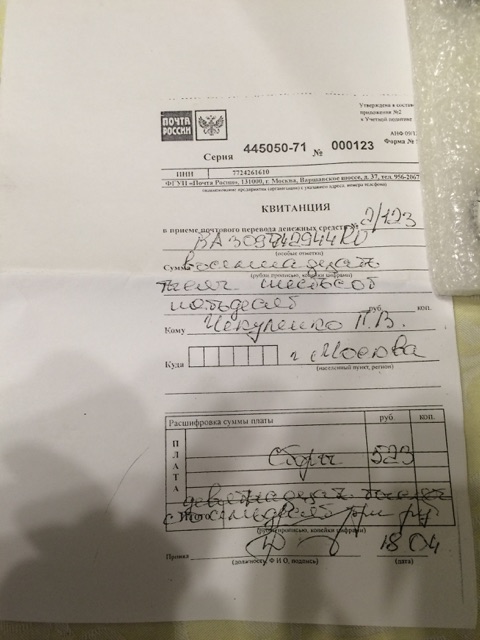 Утверждена в соста
приложения №2
к Учетной политике
ПОЧТА
РОССИИ
АНФ 09/1
Форма №
Серия 445050-71 № 000123
ИНН 7724261610
ФГУП «Почта России», 131000, г. Москва, Варшавское шоссе, д. 37, тел. 956-2067
(наименование предприятия (организации) с указанием адреса, номера телефона)
КВИТАНЦИЯ
в приеме почтового перевода денежных средств № 2/123
ВА309742944RU
(особые отметки)
Сумма восемнадцать
(рубли прописью, копейки цифрами)
тысяч шестьсот
пятьдесят руб. коп.
Кому П.В.
Куда г Москва
(населенный пункт, регион)
Расшифровка суммы платы руб. коп.
ПЛАТА
Сборы 523
девятнадцать тысяч
сто семьдесят три ру
(рубли прописью, копейки цифрами)
18 04
(должность, Ф И О, подпись) (дата)